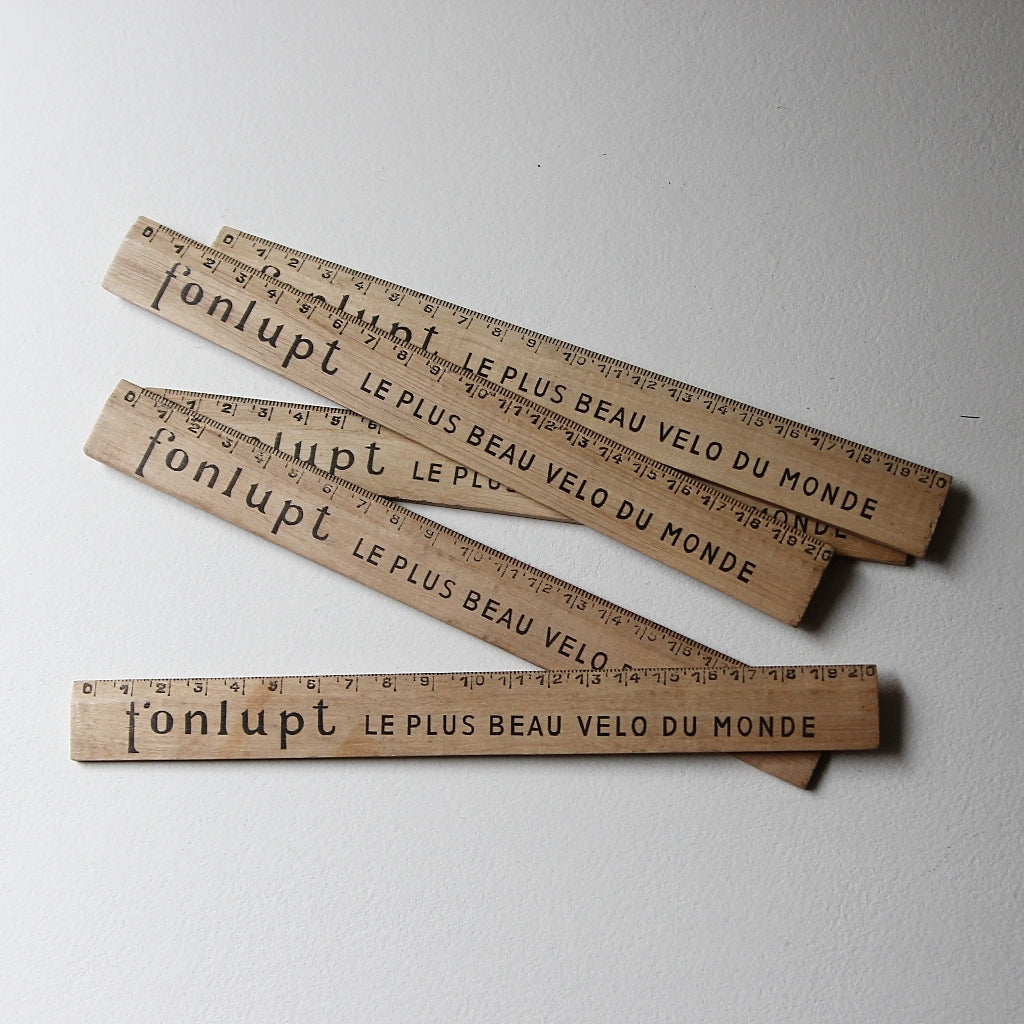 0 1 2 3 4 5 6 7 8 9 10 11 12 13 14 15 16 17 18 19 20
lupt LE PLUS BEAU VELO DU MONDE
0 1 2 3 4 5 6 7 8 9 10 11 12 13 14 15 16 17 18 19 20
fonlupt LE PLUS BEAU VELO DU MONDE
1 2 3 4 5 6
lupt LE PLUS MONDE
0 1 2 3 4 5 6 7 8 9 10 11 12 13 14 15 16 17
fonlupt LE PLUS BEAU VELO
0 1 2 3 4 5 6 7 8 9 10 11 12 13 14 15 16 17 18 19 20
fonlupt LE PLUS BEAU VELO DU MONDE